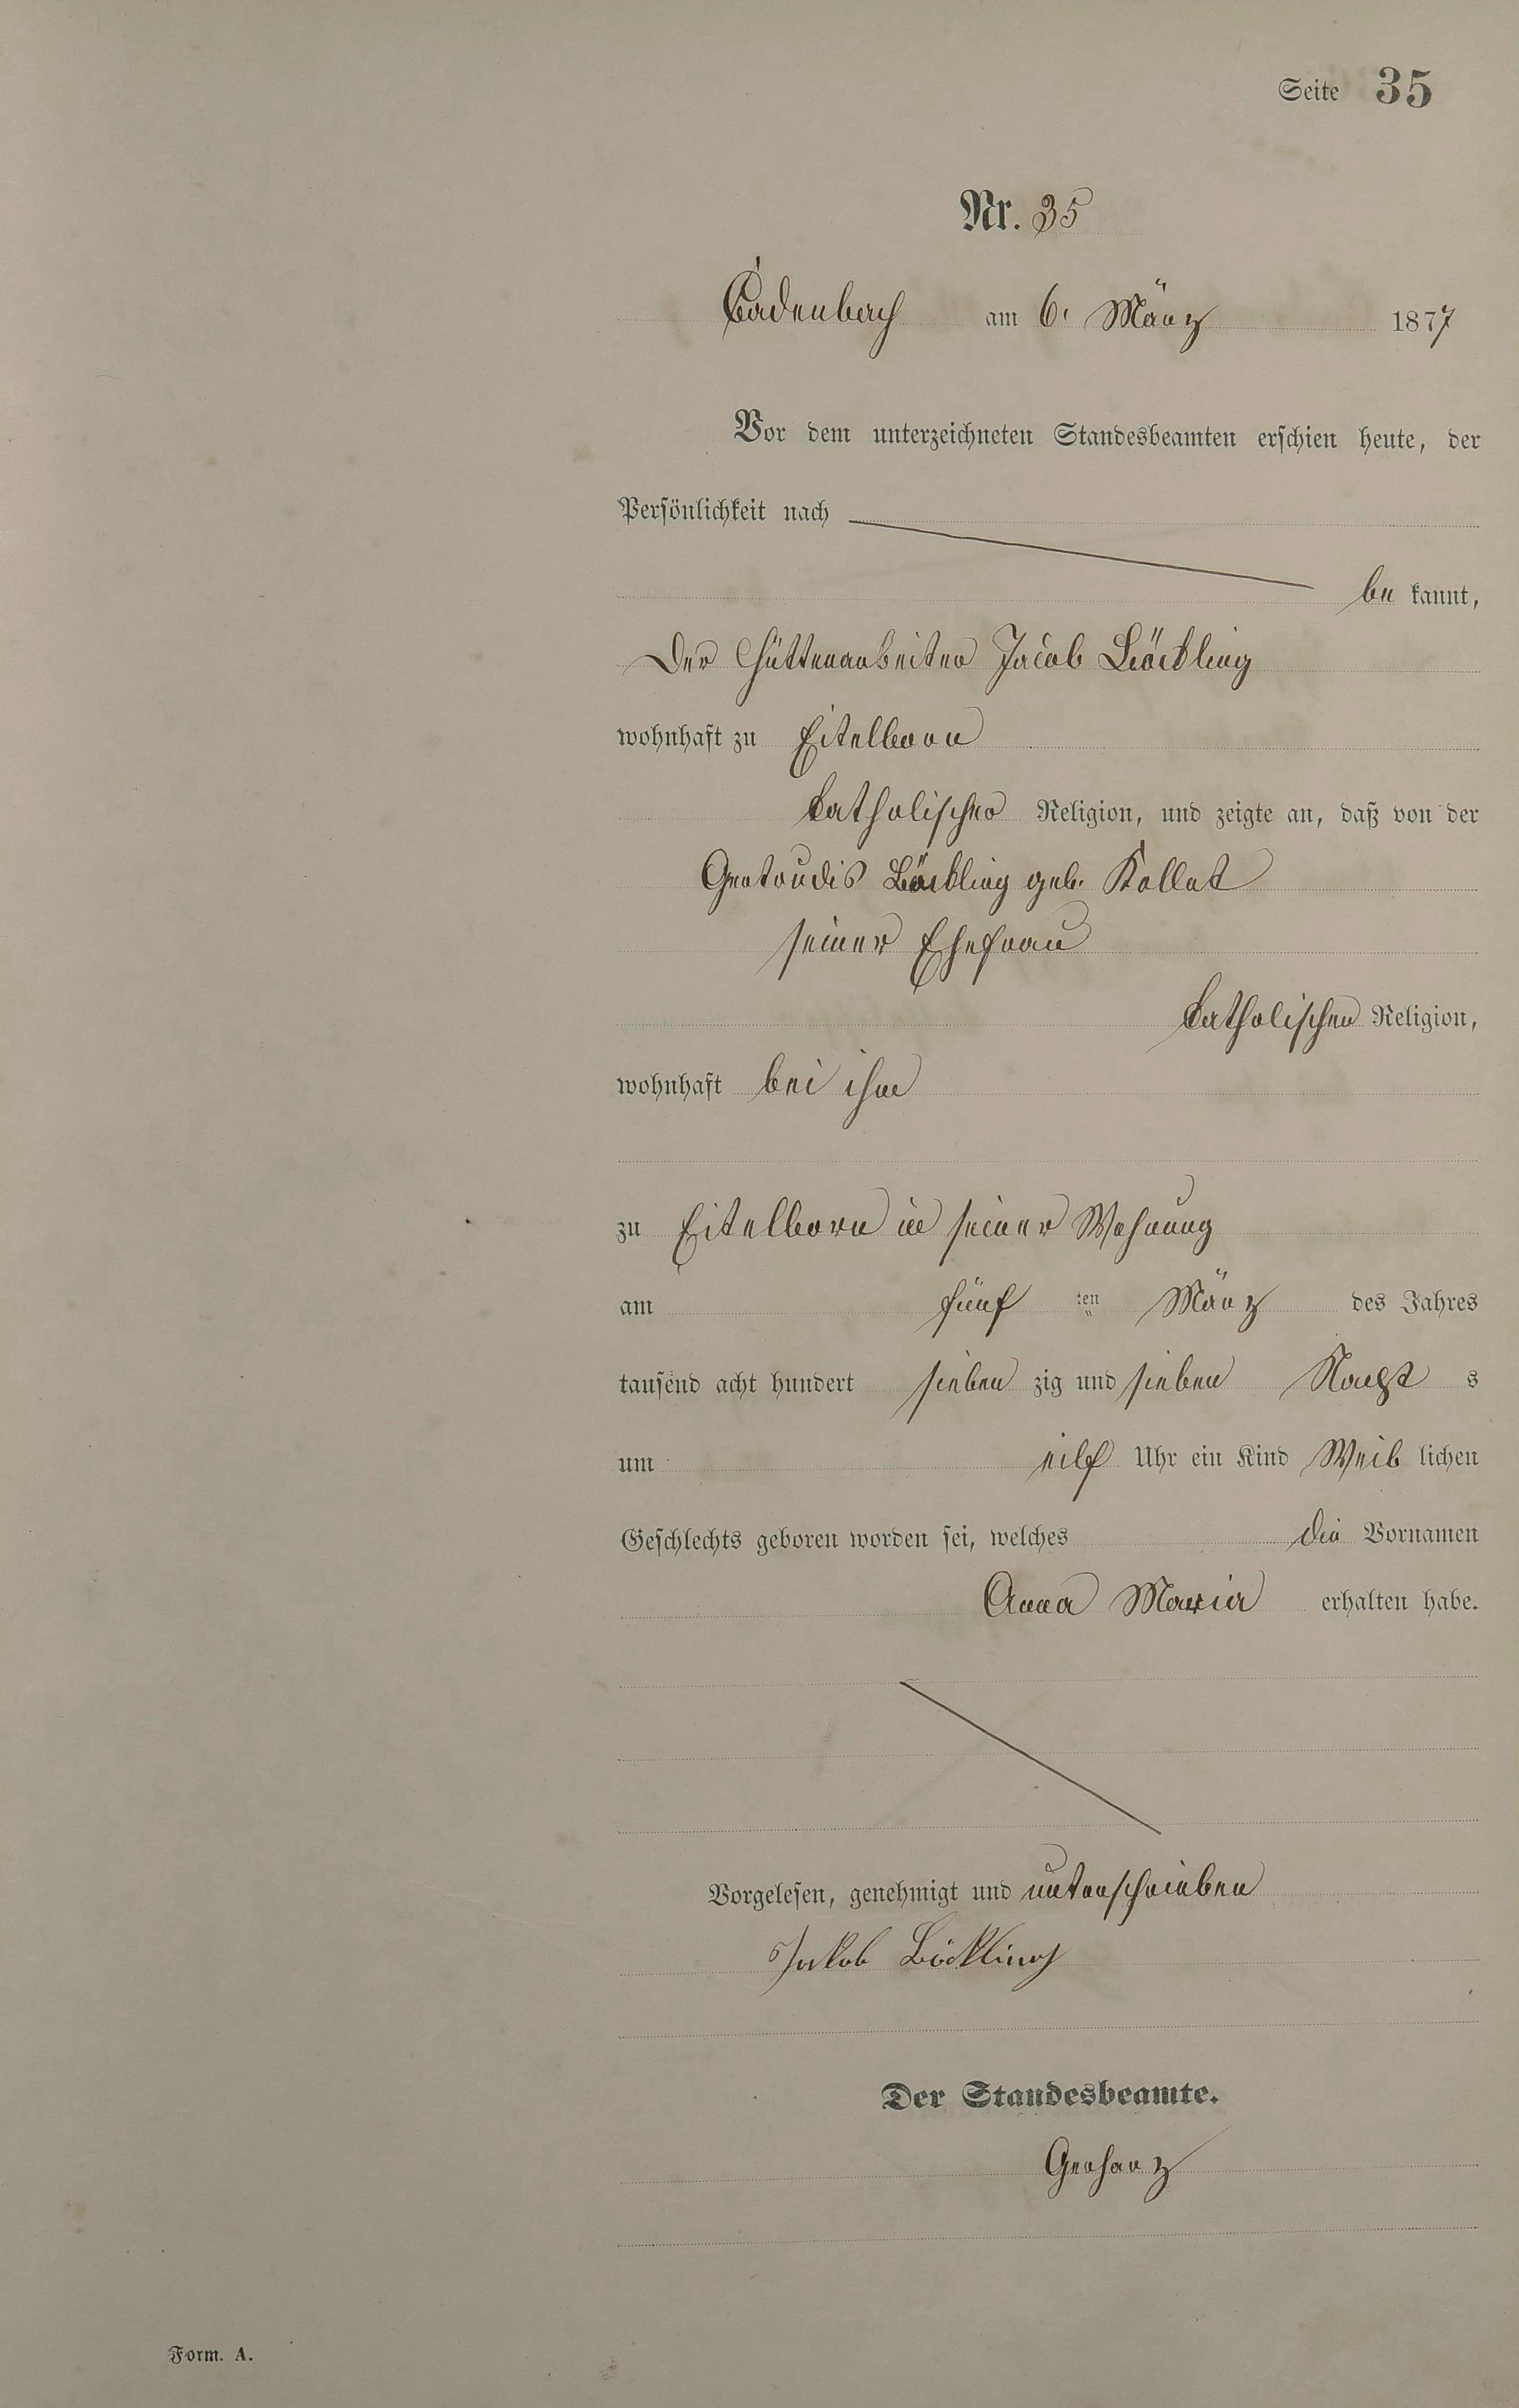 Seite 35
Nr. 35
Cadenbach am 6. März 1877
Vor dem unterzeichneten Standesbeamten erschien heute, der
Persönlichkeit nach
be kannt,
Der Hüttenarbeiter Jacob Böckling
wohnhaft zu Eitelborn
katholischer Religion, und zeigte an, daß von der
Gertrudis Böckling geb.
seiner Ehefrau
katholischen Religion,
wohnhaft bei ihm
zu Eitelborn in seiner Wohnung
am fünf ten März des Jahres
tausend acht hundert sieben zig und sieben Nachts
um eilf Uhr ein Kind Weib lichen
Geschlechts geboren worden sei, welches die Vornamen
Anna Maria erhalten habe.
Vorgelesen, genehmigt und unterschrieben
Jakob Böckling
Der Standesbeamte.
Gerharz
Form. A.